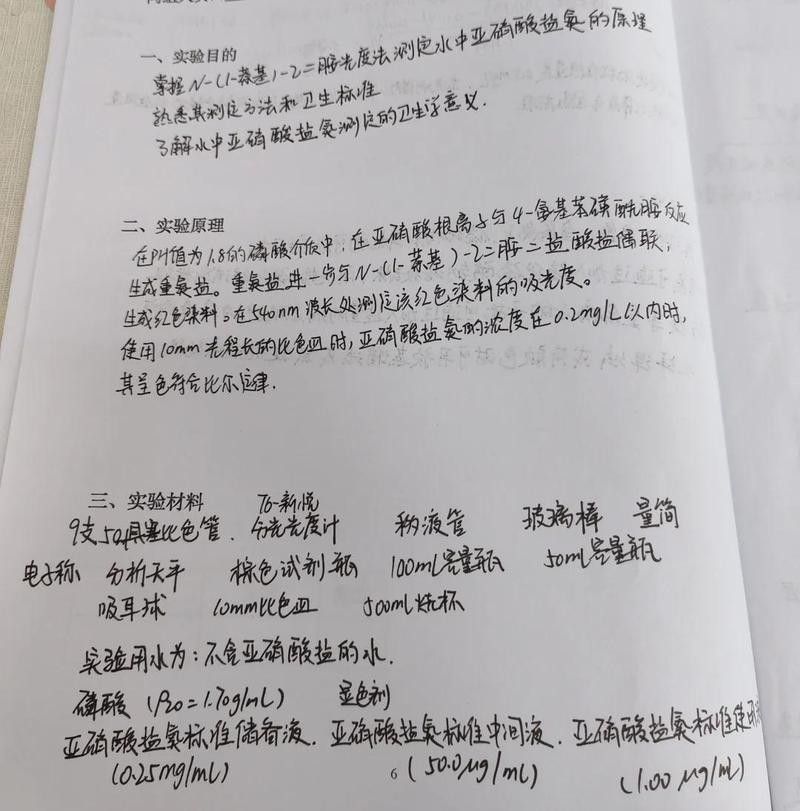 一、实验目的
掌握N-(1-萘基)-乙二胺光度法测定水中亚硝酸盐氮的原理
熟悉其测定方法和卫生标准
了解水中亚硝酸盐氮测定的卫生学意义.
二、实验原理
在PH值为1.8的磷酸介质中,在亚硝酸根离子与4-氨基苯磺酰胺反应
生成重氮盐。重氮盐进一步与N-(1-萘基)-乙二胺二盐酸盐偶联,
生成红色染料。在540nm波长处测定该红色染料的吸光度。
使用10mm光程长的比色皿时,亚硝酸盐氮的浓度在0.2mg/L以内时,
其呈色符合比尔定律.
三、实验材料 T6-新悦
9支50ml具塞比色管. 分光光度计 移液管 玻璃棒 量筒
电子称 分析天平 棕色试剂瓶 100ml容量瓶 50ml容量瓶
吸耳球 10mm比色皿 500ml烧杯
实验用水为:不含亚硝酸盐的水.
磷酸 (ρ20=1.70g/mL) 显色剂
亚硝酸盐氮标准储备液. 亚硝酸盐氮标准中间液. 亚硝酸盐氮标准使用液
(0.25mg/mL) (50.0μg/mL) (1.00μg/mL)
6